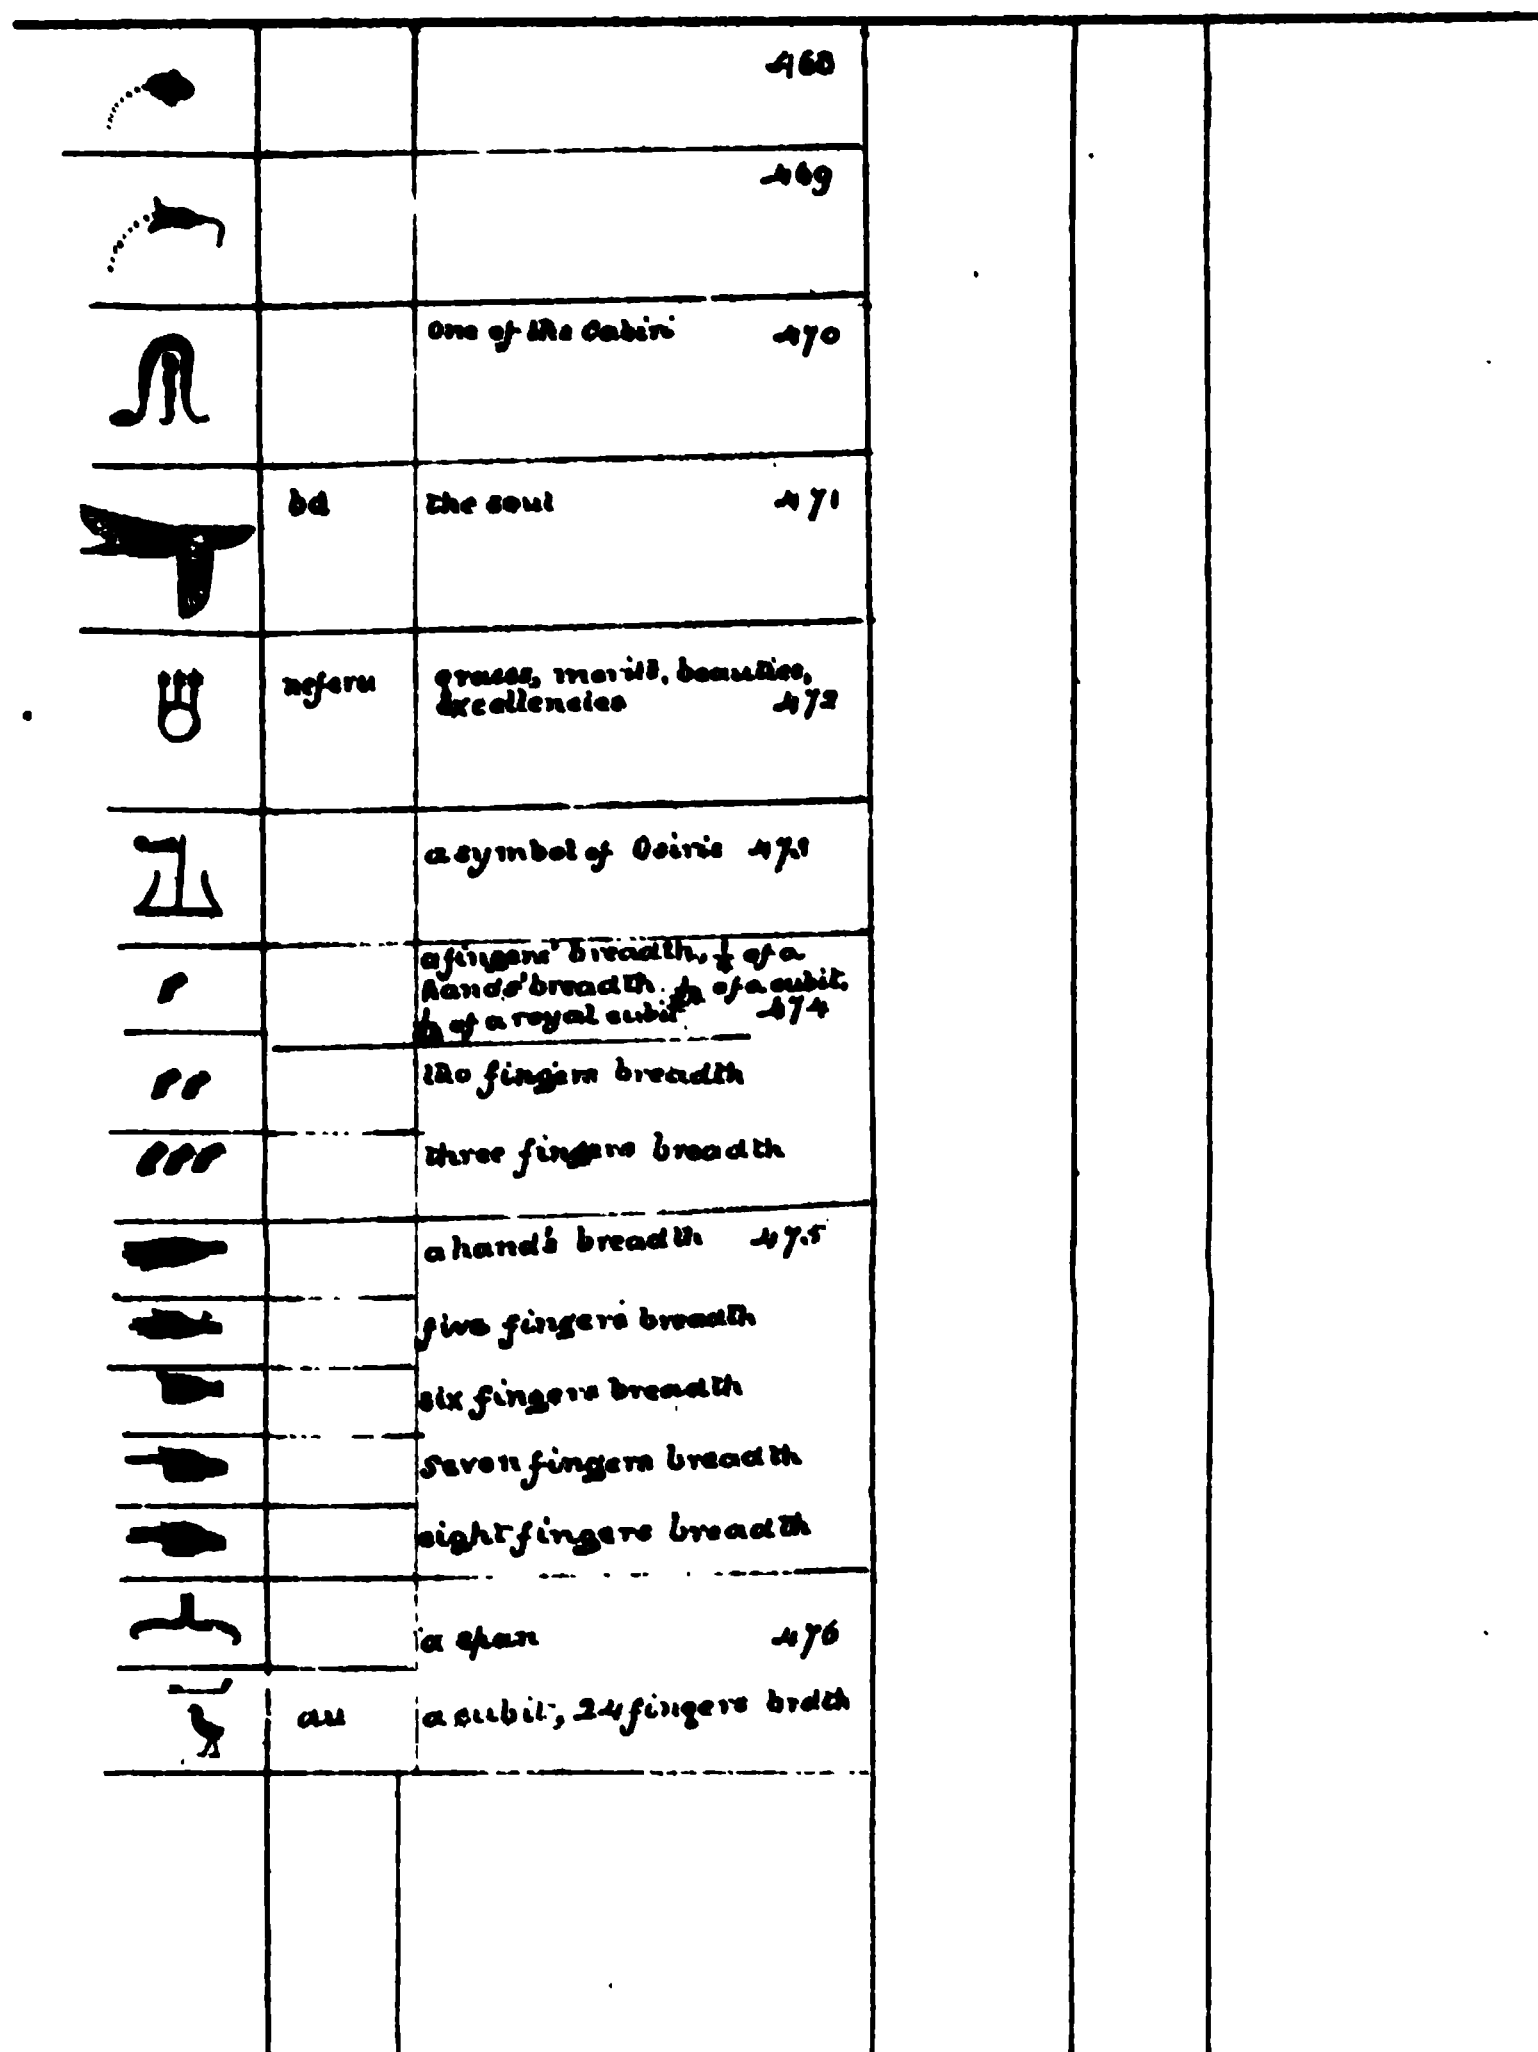 468
469
One of the Cabiri 470
ba the soul 471
neferu graces, merits, beauties,
excellencies 472
a symbol of Osiris 473
a fingers' breadth, ¼ of a
hands' breadth of a cubit,
of a royal cubit 474
two fingers breadth
three fingers breadth
a hand's breadth 475
five fingers breadth
six fingers breadth
seven fingers breadth
eight fingers breadth
a span 476
au a cubit, 24 fingers brdth